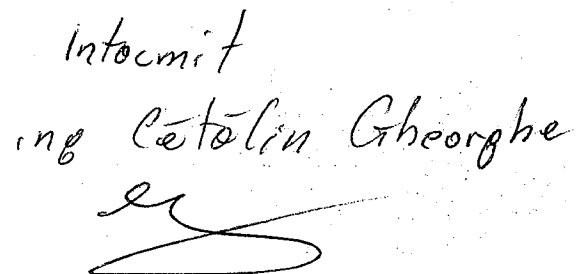 Intocmit
ing Cătălin Gheorghe